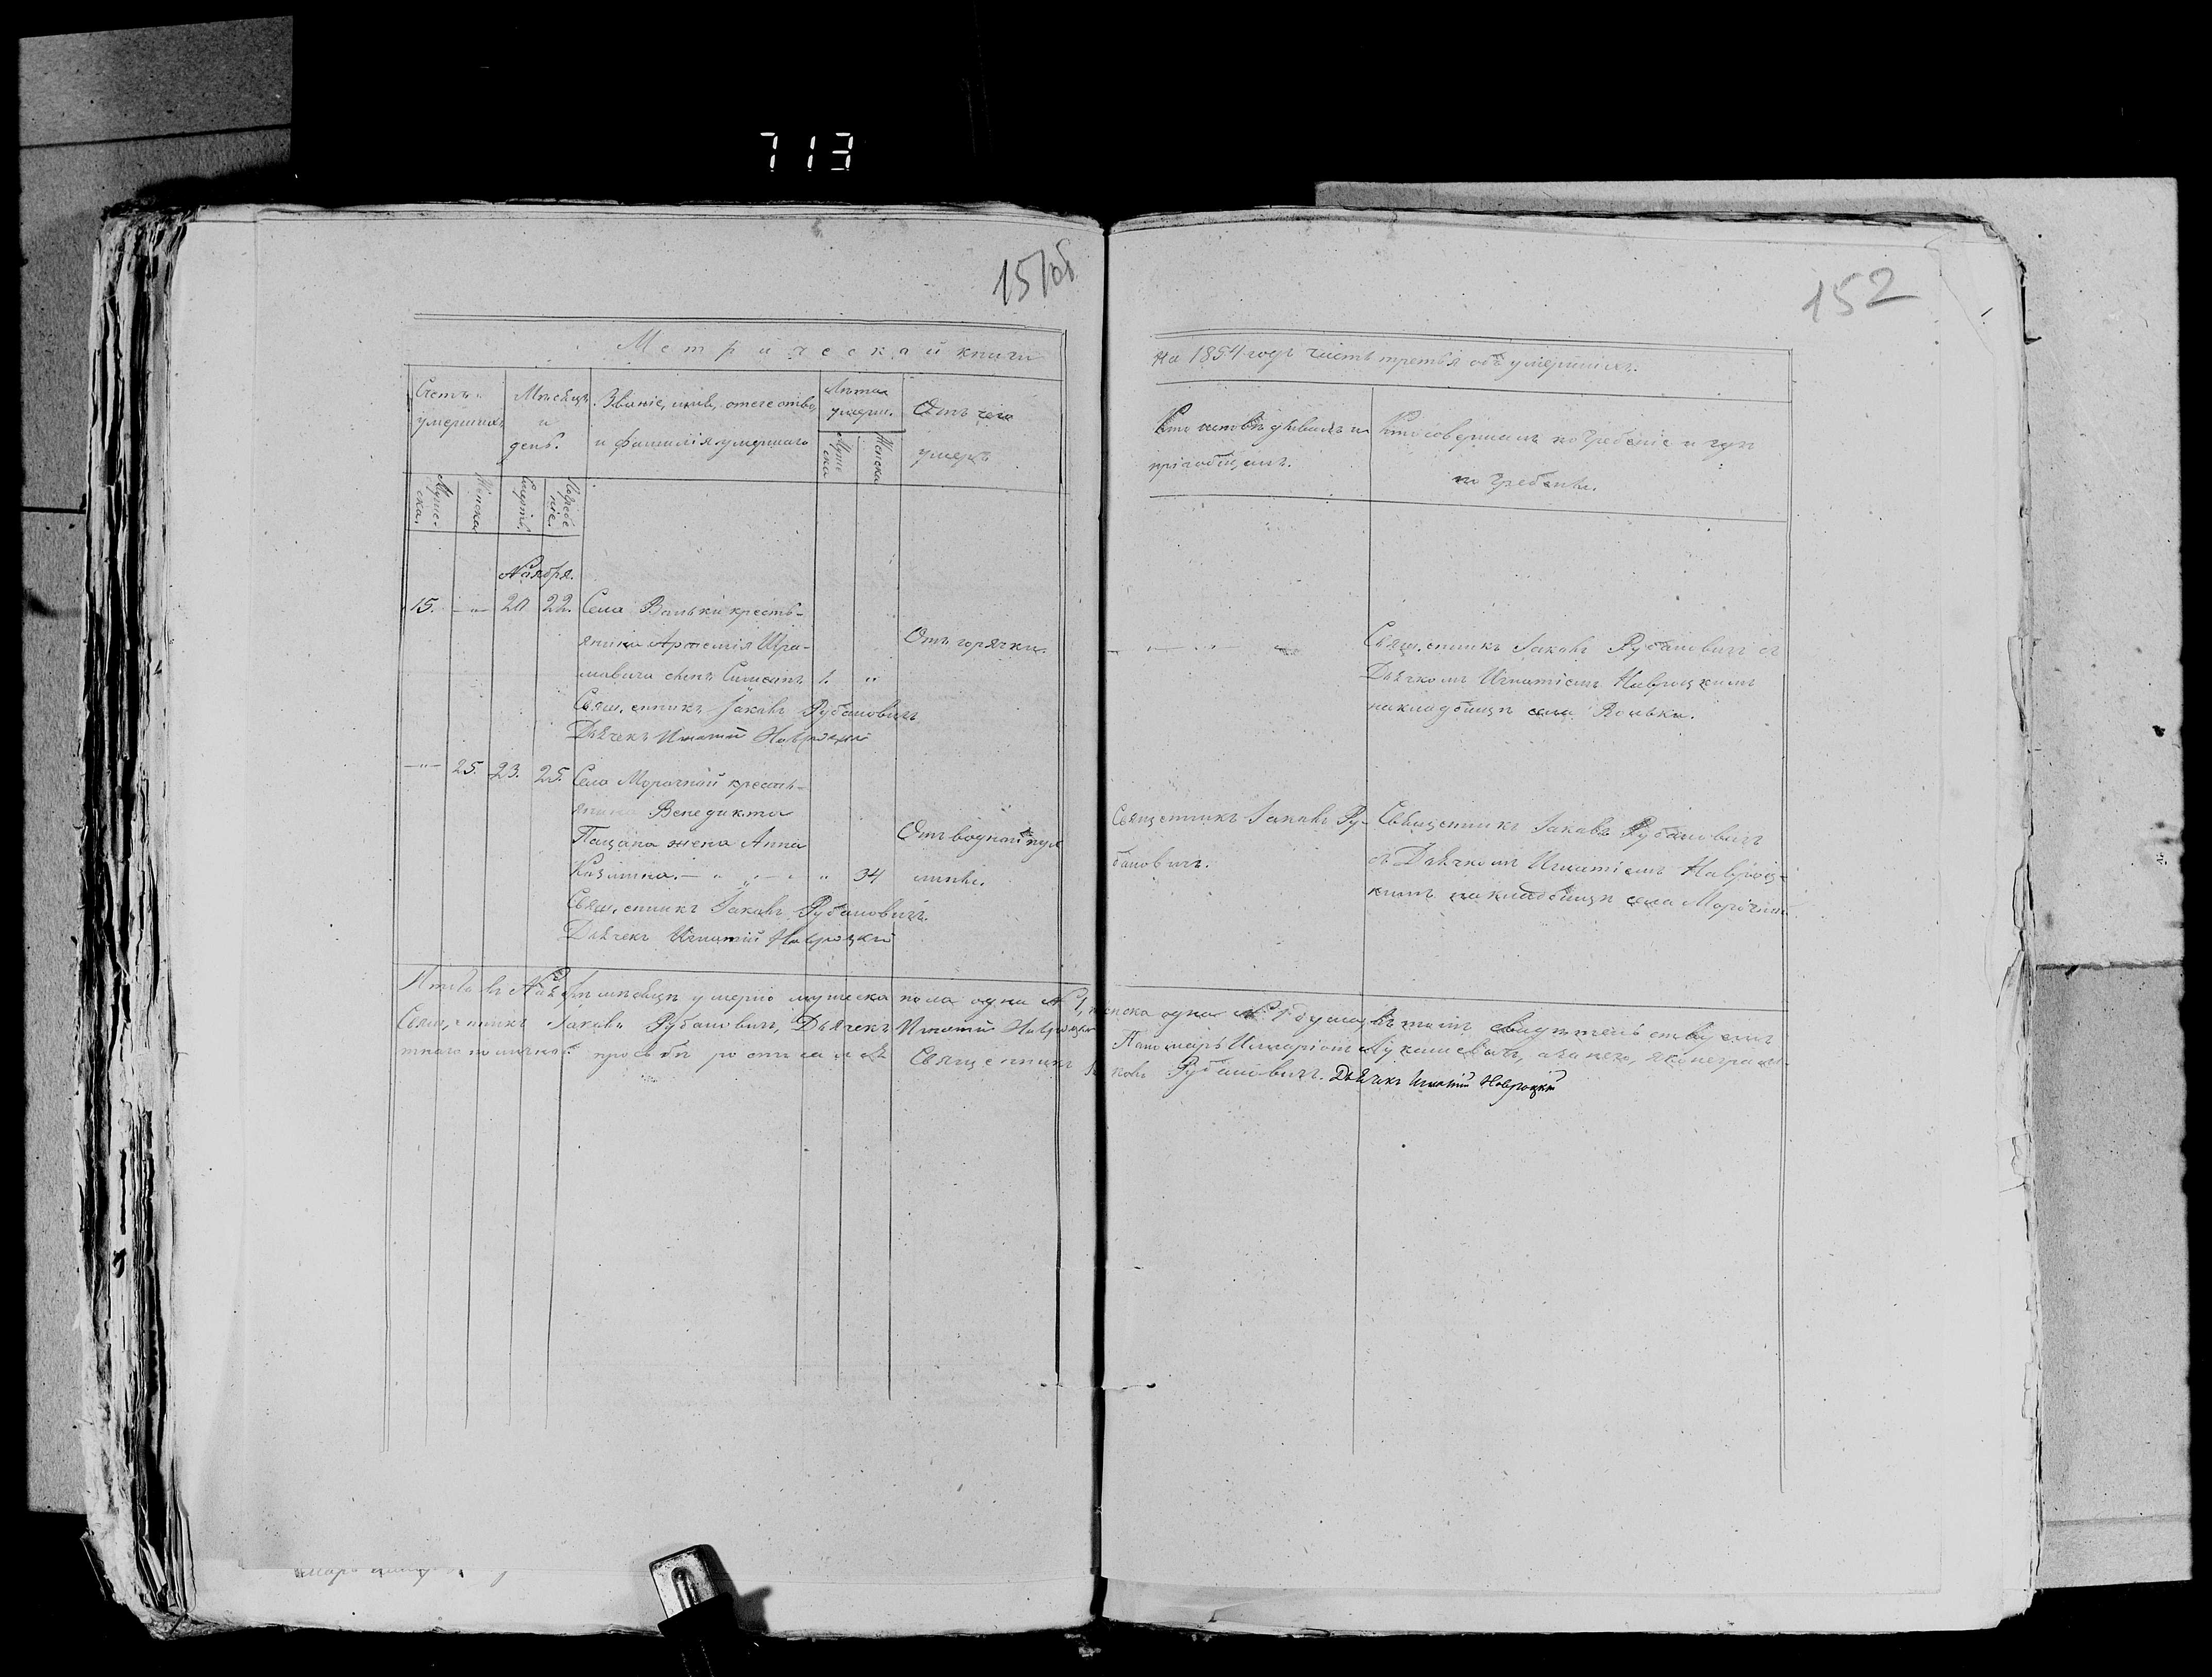 713
151об
152
Метрической книги
На 1854 годъ часть третья объ умершихъ.
Счетъ умершихъ
Мѣсяцъ и день.
Званіе, имя, отечество и фамилія умершаго
Лѣта умерш.
Отъ чего умеръ
Кто исповѣдывалъ и пріобщалъ.
Кто совершалъ погребеніе и гдѣ погребены.
Мужеска.
Женска
Смерть.
Погребеніе.
Мужеска
Женска
Ноября.
15. —„— 20 22. Села Воньки кресть-
янина Артемія
сынъ 1. „
Отъ горячки.
Свящ.енникъ Іаковъ Рубановичъ
Дьячекъ Игнатій Навроцкій
Свящ.енникъ Іаковъ Рубановичъ съ
Дьячкомъ Игнатіемъ Навроцкимъ
на кладбищѣ села Воньки.
—„— 25. 23. 25. Села Морочной кресть-
янина Венедикта
Пащана жена Анна
34
Отъ водной пух
лины.
Свящ.енникъ Іаковъ Рубановичъ.
Дьячекъ Игнатій Навроцкій
Священникъ Іаковъ Ру-
бановичъ.
Священникъ Іаковъ Рубановичъ
съ Дьячкомъ Игнатіемъ Навроц-
кимъ на кладбищѣ села Морочной.
Итого въ Ноябрѣ мѣсяцѣ умерло мужеска пола одна № 1, женска одна № 1 душа, въ томъ свидѣтельствуемъ
Свящ.енникъ Іаковъ Рубановичъ, Дьячекъ Игнатій Навроцкій Пономарь Лукашевичъ, а за него, яко неграмо-
тнаго по личной просьбѣ росписался Священникъ Іаковъ Рубановичъ. Дьячекъ Игнатій Навроцкій